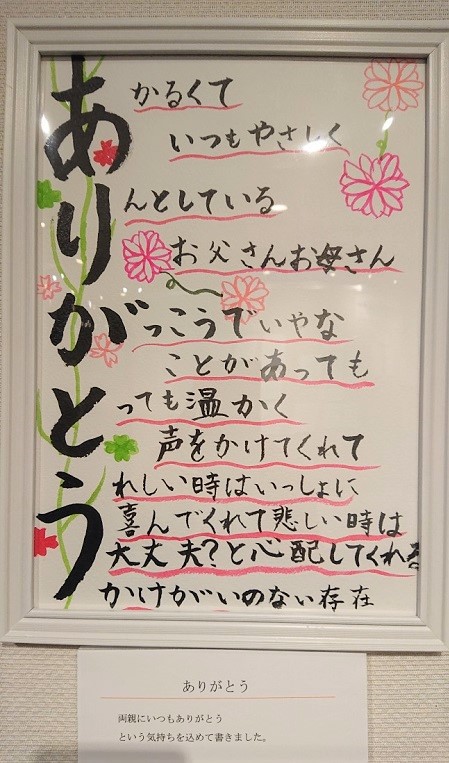 ありがとう
かるくて
いつもやさしく
んとしている
お父さんお母さん
っこうでいやな
ことがあっても
っても温かく
声をかけてくれて
れしい時はいっしょに
喜んでくれて悲しい時は
大丈夫?と心配してくれる
かけがいのない存在
ありがとう
両親にいつもありがとう
という気持ちを込めて書きました。